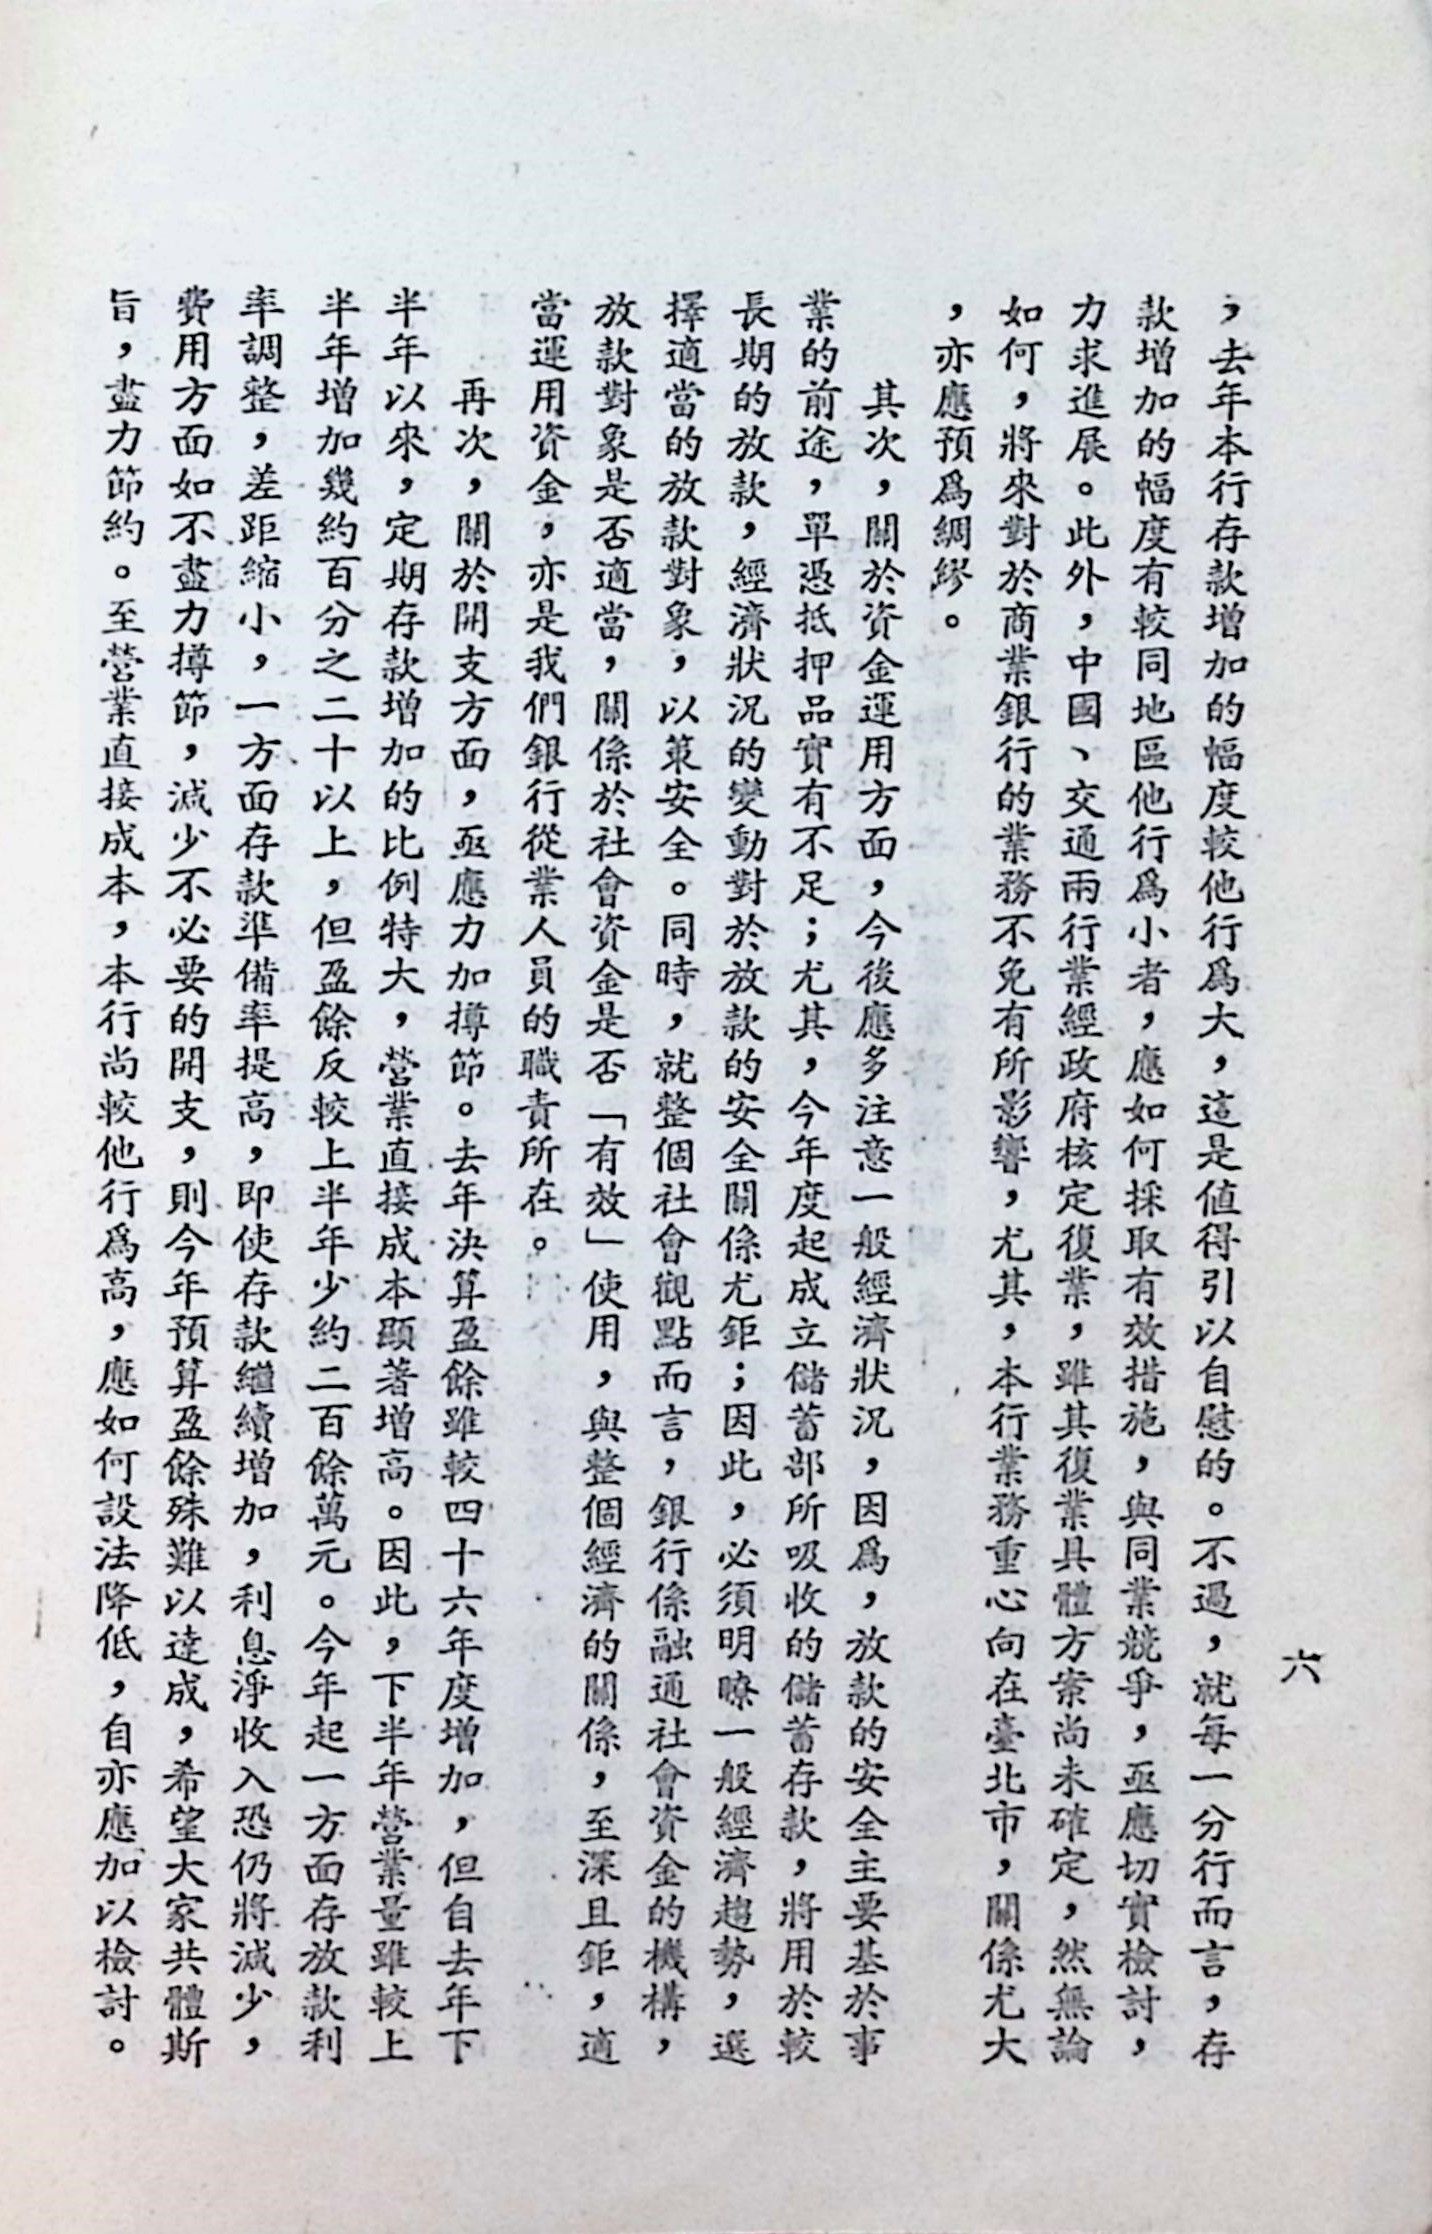 六
，去年本行存款增加的幅度較他行爲大，這是値得引以自慰的。不過，就每一分行而言，存
款增加的幅度有較同地區他行爲小者，應如何採取有效措施，與同業競爭，亟應切實檢討，
力求進展。此外，中國、交通兩行業經政府核定復業，雖其復業具體方案尚未確定，然無論
如何，將來對於商業銀行的業務不免有所影響，尤其，本行業務重心向在臺北市，關係尤大
，亦應預爲綢繆。
其次，關於資金運用方面，今後應多注意一般經濟狀況，因爲，放款的安全主要基於事
業的前途，單憑抵押品實有不足；尤其，今年度起成立儲蓄部所吸收的儲蓄存款，將用於較
長期的放款，經濟狀況的變動對於放款的安全關係尤鉅；因此，必須明瞭一般經濟趨勢，選
擇適當的放款對象，以策安全。同時，就整個社會觀點而言，銀行係融通社會資金的機構，
放款對象是否適當，關係於社會資金是否「有效」使用，與整個經濟的關係，至深且鉅，適
當運用資金，亦是我們銀行從業人員的職責所在。
再次，關於開支方面，亟應力加撙節。去年決算盈餘雖較四十六年度增加，但自去年下
半年以來，定期存款增加的比例特大，營業直接成本顯著增高。因此，下半年營業量雖較上
半年增加幾約百分之二十以上，但盈餘反較上半年少約二百餘萬元。今年起一方面存放款利
率調整，差距縮小，一方面存款準備率提高，即使存款繼續增加，利息淨收入恐仍將減少，
費用方面如不盡力撙節，減少不必要的開支，則今年預算盈餘殊難以達成，希望大家共體斯
旨，盡力節約。至營業直接成本，本行尚較他行爲高，應如何設法降低，自亦應加以檢討。